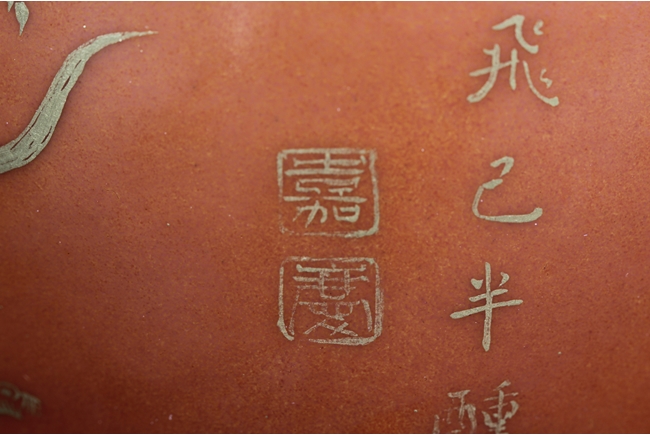 飛已半醺
嘉
慶